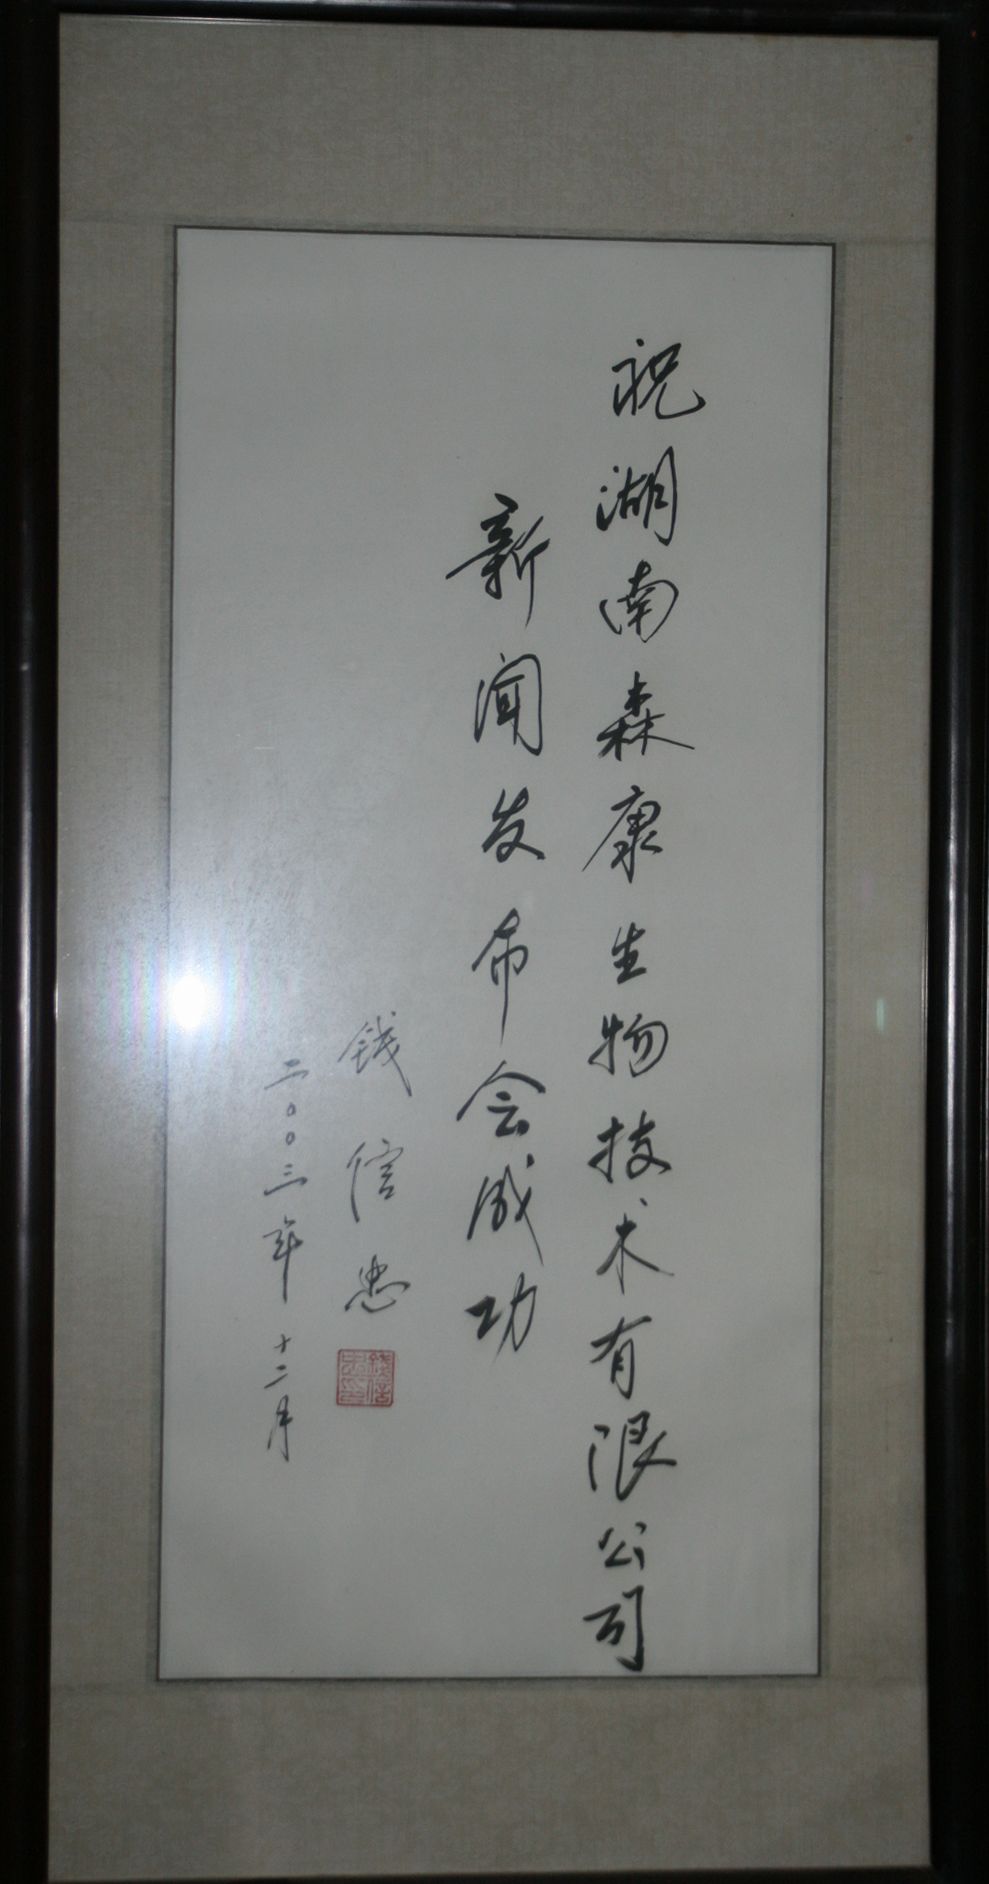 祝湖南森康生物技术有限公司
新闻发布会成功
钱信忠
二〇〇三年十二月